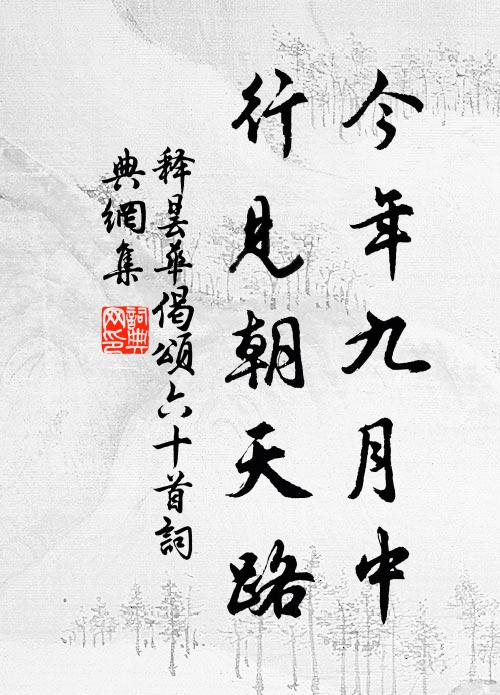 今年九月中
行見朝天路
释昙华偈頌六十首詞
典網集
詞典
网印